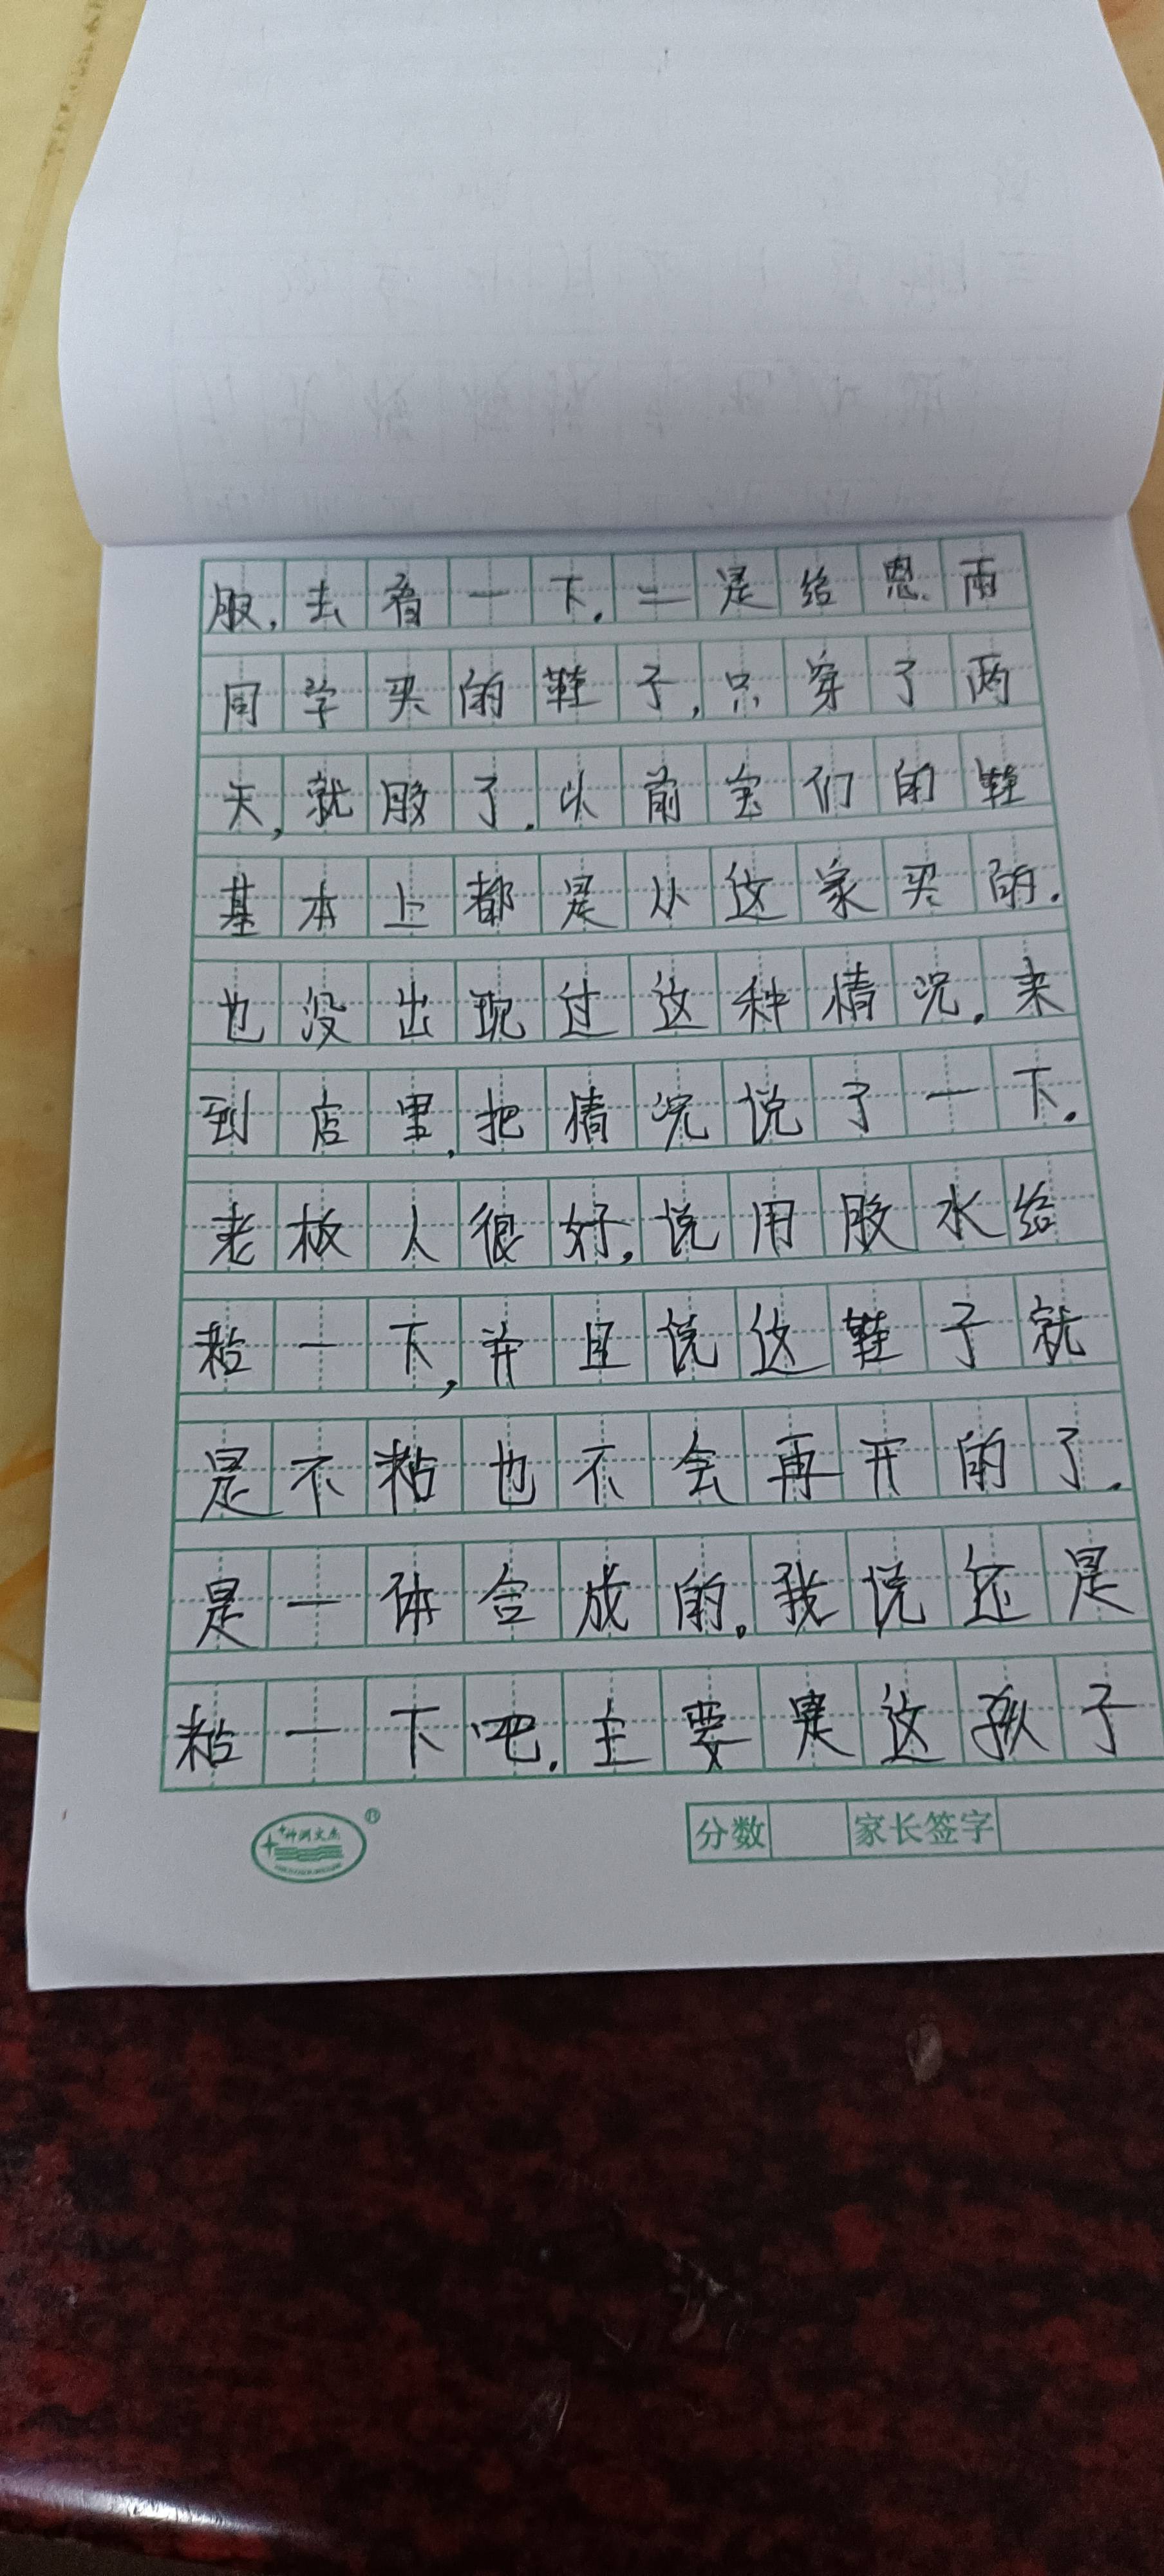 服,去看一下.二是给恩雨
同学买的鞋子,只穿了两
天,就胶了.以前宝们的鞋
基本上都是从这家买的.
也没出现过这种情况.来
到店里,把情况说了一下.
老板人很好,说用胶水给
粘一下,并且说这鞋子就
是不粘也不会再开的了.
是一体合成的。我说还是
粘一下吧.主要是这孩子
分数 家长签字